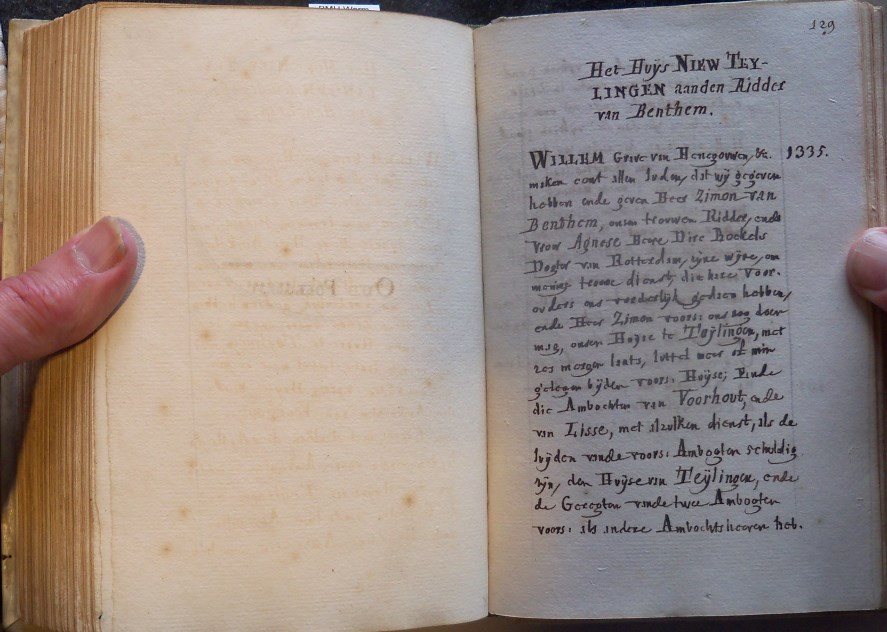 129
Het Huÿs NIEW TEY-
LINGEN aanden Ridder
van Benthem.
WILLEM Grave van Henegouwen, &c. 1335.
maken cont allen luden, dat wÿ gegeven
hebben ende geven Heer Zimon van
Benthem, onsen trouwen Ridder, ende
Vrow Agnese Heere Dirc Bockels
Dogter van Rotterdam, sÿne wÿve, om
menig trowe dienst, die hare voor-
orders ons gedaen hebben,
ende Heer Zimon voors: ons nog doen
mag, onsen Huÿse te Teÿlingen, met
zes morgen lants, luttel meer of min
gelegen bÿden voors: Huÿse; Ende
die Ambochten van Voorhout, ende
van Lisse, met alsulken dienst, als de
luÿden vande voors: Ambogten schuldig
zÿn, den Huÿse van Teÿlingen, ende
de Geregten vande twee Ambogten
voors: als andere Ambochtsheeren heb.